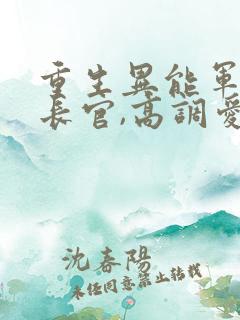 重生異能軍
長官,高調愛
沈春陽
未经同意禁止转载